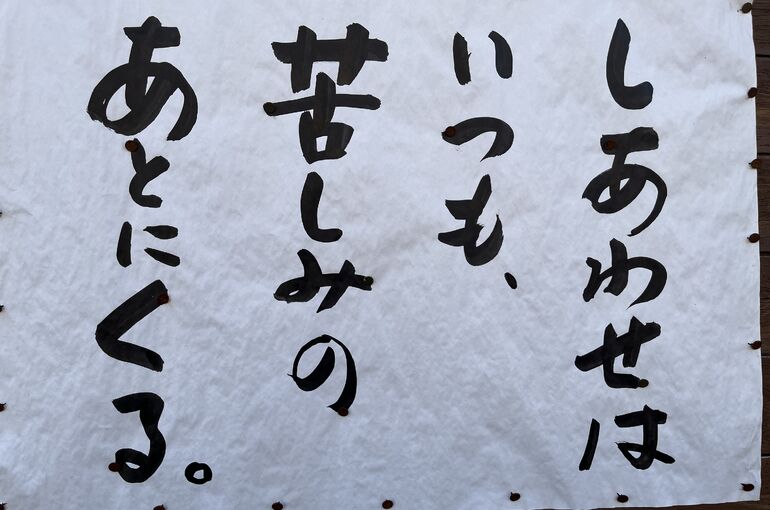 しあわせは
いつも、
苦しみの
あとにくる。